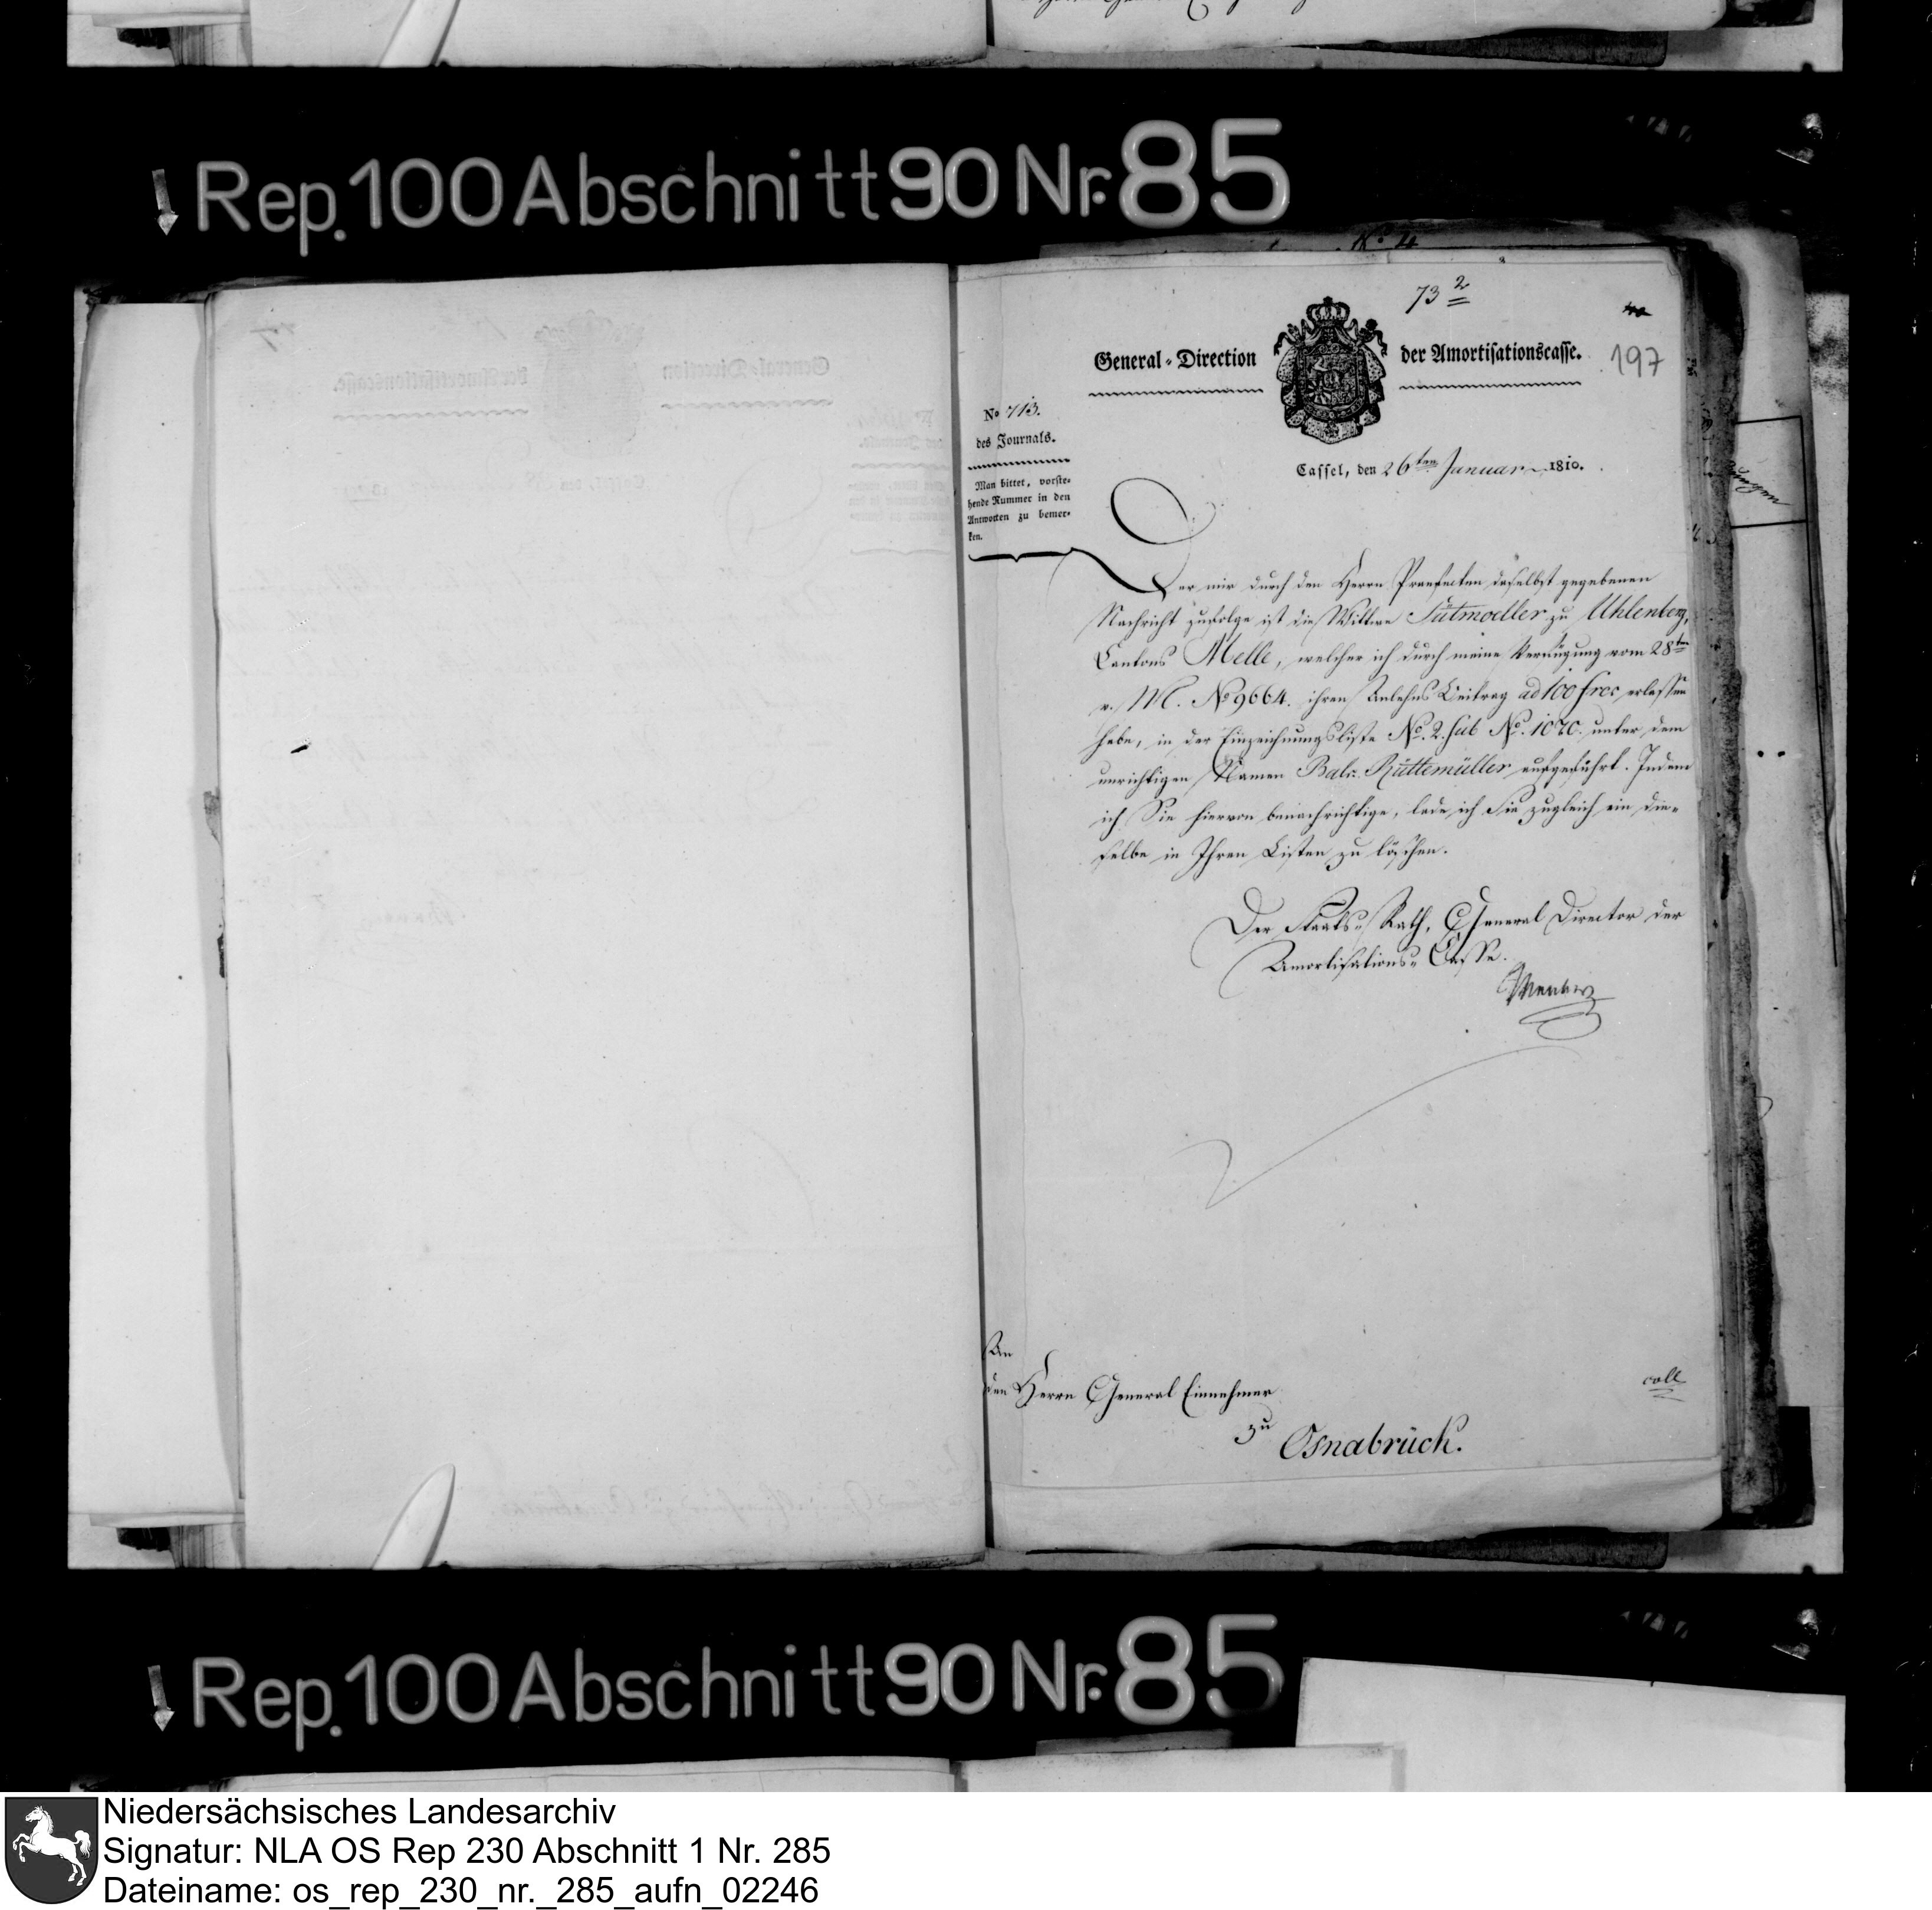 Rep. 100 Abschnitt 90 Nr. 85
No. 4
73 2
General-Direction der Amortisationscasse.
197
No 713.
des Journals.
Man bittet, vorste-
hende Nummer in den
Antworten zu bemer-
ken.
Cassel, den 26ten Januar 1810.
Der mir durch den Herrn Praefecten daselbst gegebenen
Nachricht zufolge ist die Wittwe Sutmoeller zu Uhlenberg,
Cantons Melle, welcher ich durch meine Verfügung vom 28ten
v. M. No 9664. ihren Anlehns Beitrag ad 100 frcs erlassen
habe, in der Einzeichnungsliste No. 2. sub No. 1070. unter dem
unrichtigen Namen Balz. Rüttemüller aufgeführt. Indem
ich Sie hiervon benachrichtige, lade ich Sie zugleich ein die-
selbe in Ihren Listen zu löschen.
Der Staats-Rath, General Director der
Amortisations-Casse.
An
den Herrn General Einnehmer
zu
Osnabrück.
coll
Rep. 100 Abschnitt 90 Nr. 85
Niedersächsisches Landesarchiv
Signatur: NLA OS Rep 230 Abschnitt 1 Nr. 285
Dateiname: os_rep_230_nr._285_aufn_02246